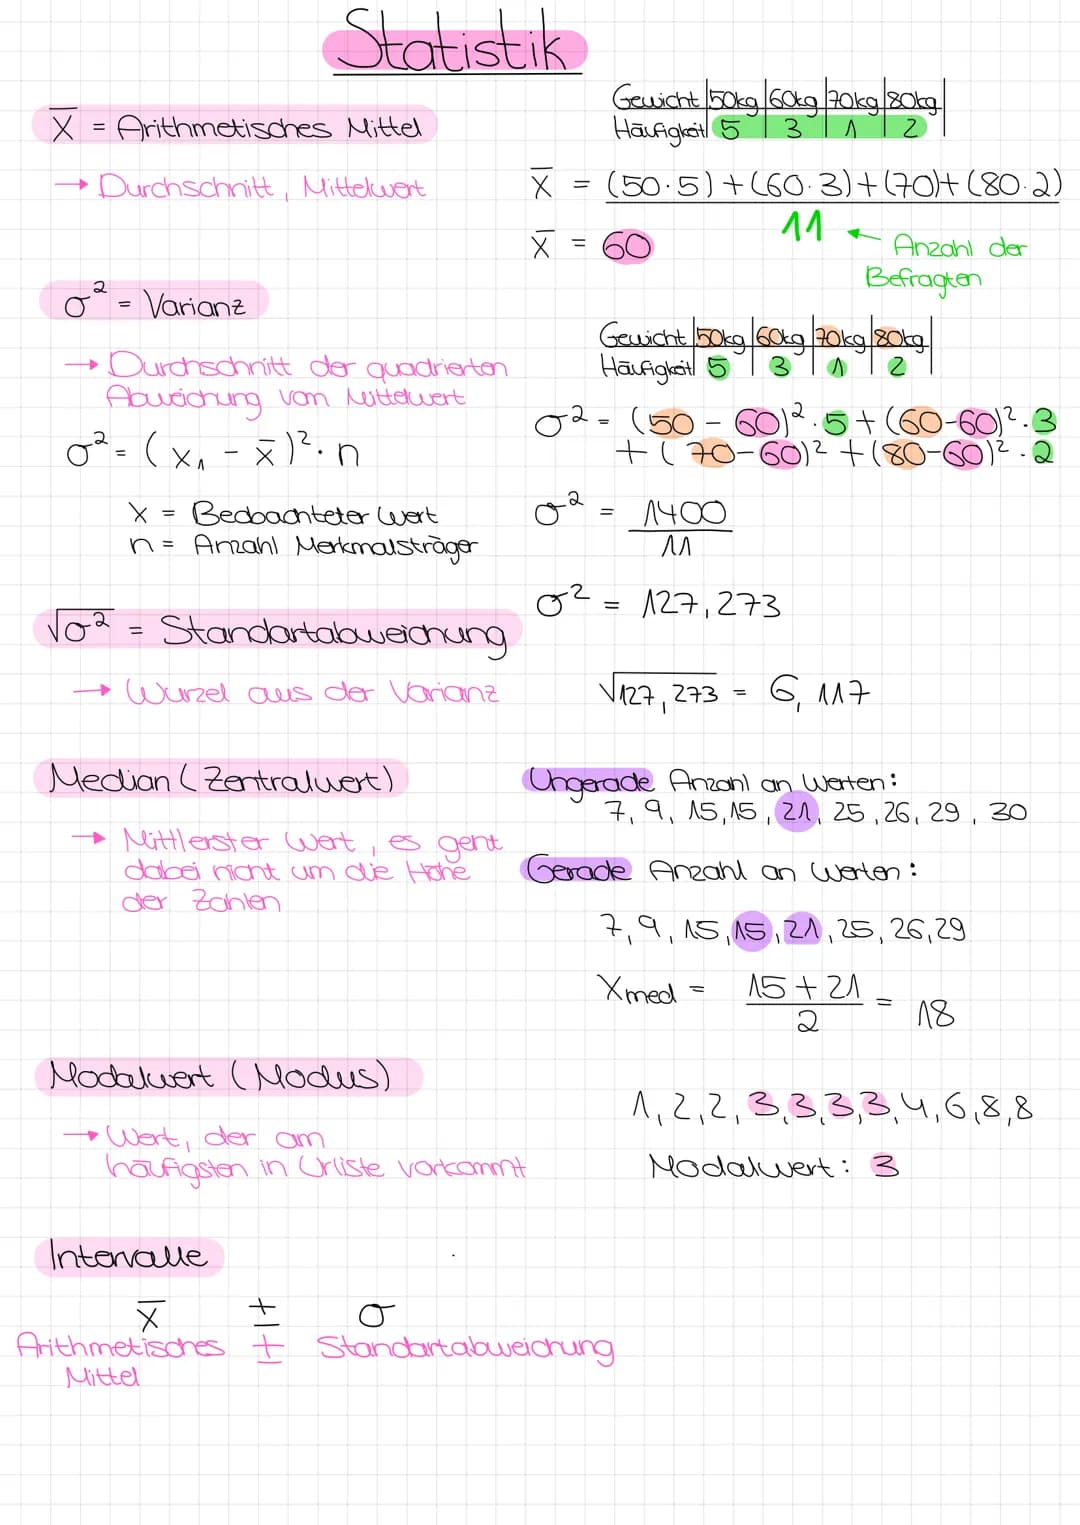 Statistik
x̄ = Arithmetisches Mittel
→ Durchschnitt, Mittelwert
Gewicht |50kg|60kg|70kg|80kg|
Häufigkeit| 5 | 3 | 1 | 2 |
x̄ = (50·5)+(60·3)+(70)+(80·2)
11 ← Anzahl der
Befragten
x̄ = 60
σ² = Varianz
→ Durchschnitt der quadrierten
Abweichung vom Mittelwert
σ² = (x₁ - x̄)²·n
x = Beobachteter Wert
n = Anzahl Merkmalsträger
Gewicht |50kg|60kg|70kg|80kg|
Häufigkeit| 5 | 3 | 1 | 2 |
σ² = (50 - 60)²·5+(60-60)²·3
+(70-60)²+(80-60)²·2
σ² = 1400
11
σ² = 127,273
√σ² = Standartabweichung
→ Wurzel aus der Varianz
√127,273 = 6,117
Median (Zentralwert)
→ Mittlerster Wert, es geht
dabei nicht um die Höhe
der Zahlen
Ungerade Anzahl an Werten:
7, 9, 15, 15, 21, 25, 26, 29, 30
Gerade Anzahl an Werten:
7, 9, 15, 15, 21, 25, 26, 29
Xmed = 15+21 = 18
2
Modalwert (Modus)
→ Wert, der am
häufigsten in Urliste vorkommt
1, 2, 2, 3, 3, 3, 3, 4, 6, 8, 8
Modalwert: 3
Intervalle
x̄ ± σ
Arithmetisches ± Standartabweichung
Mittel